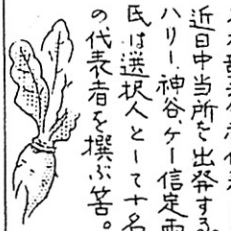 近日中当所を出発する。
ハリー、神谷、ケー信定両
氏は選択人として十名
の代表者を撰ぶ筈。